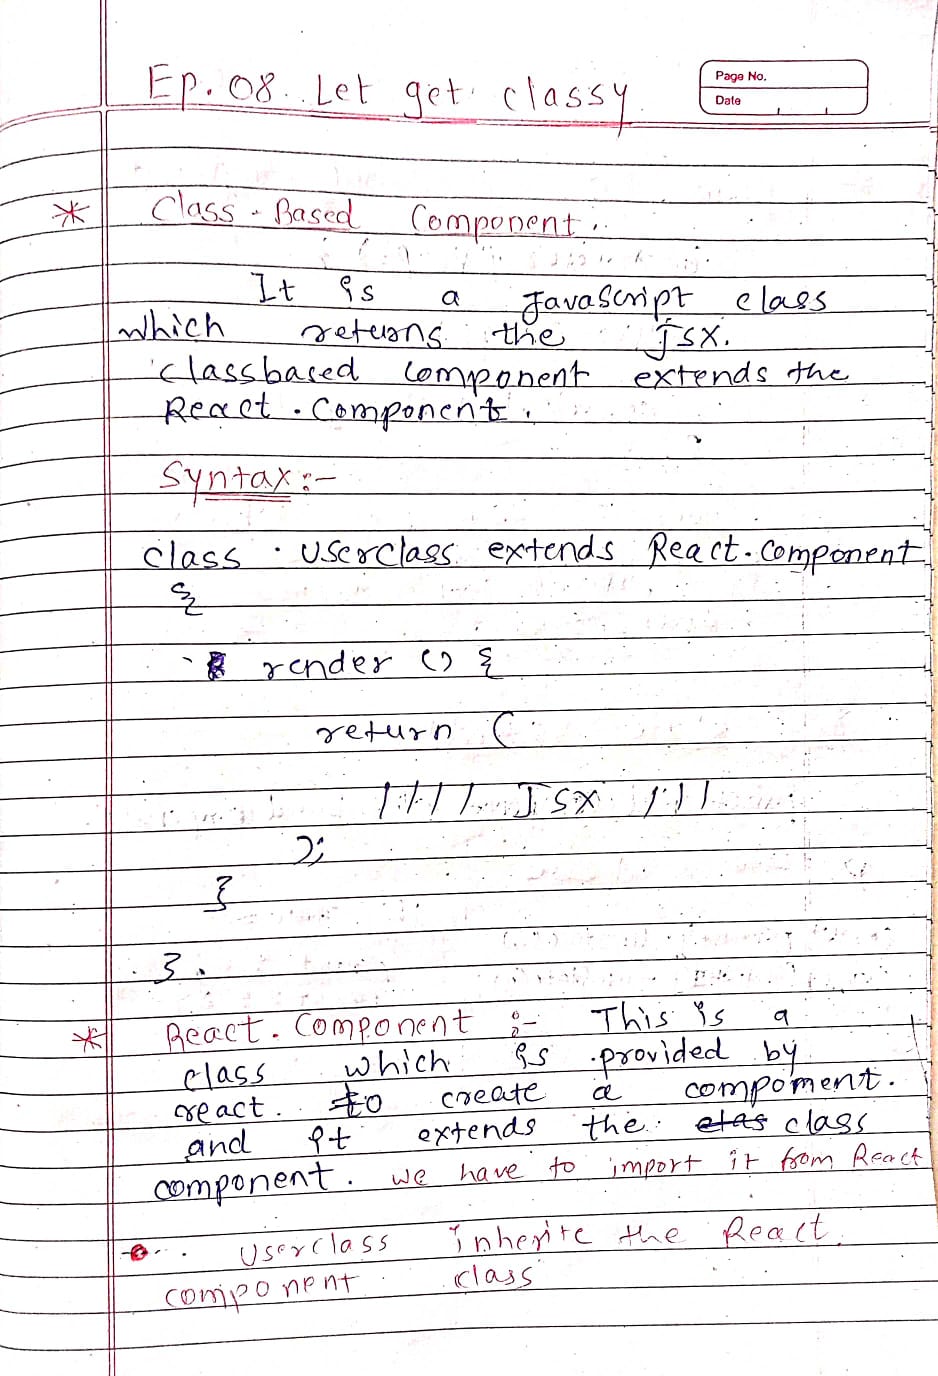 Page No.
Date
Ep. 08. Let get classy
* Class-Based Component.
It is a JavaScript class
which returns the JSX.
classbased component extends the
React.Component.
Syntax:-
class UserClass extends React.Component
{
render () {
return (
//// JSX ///
);
}
}.
* React.Component :- This is a
class which is provided by
react. to create a compoment.
and it extends the class
component. we have to import it from React
Userclass inherite the React.
component class